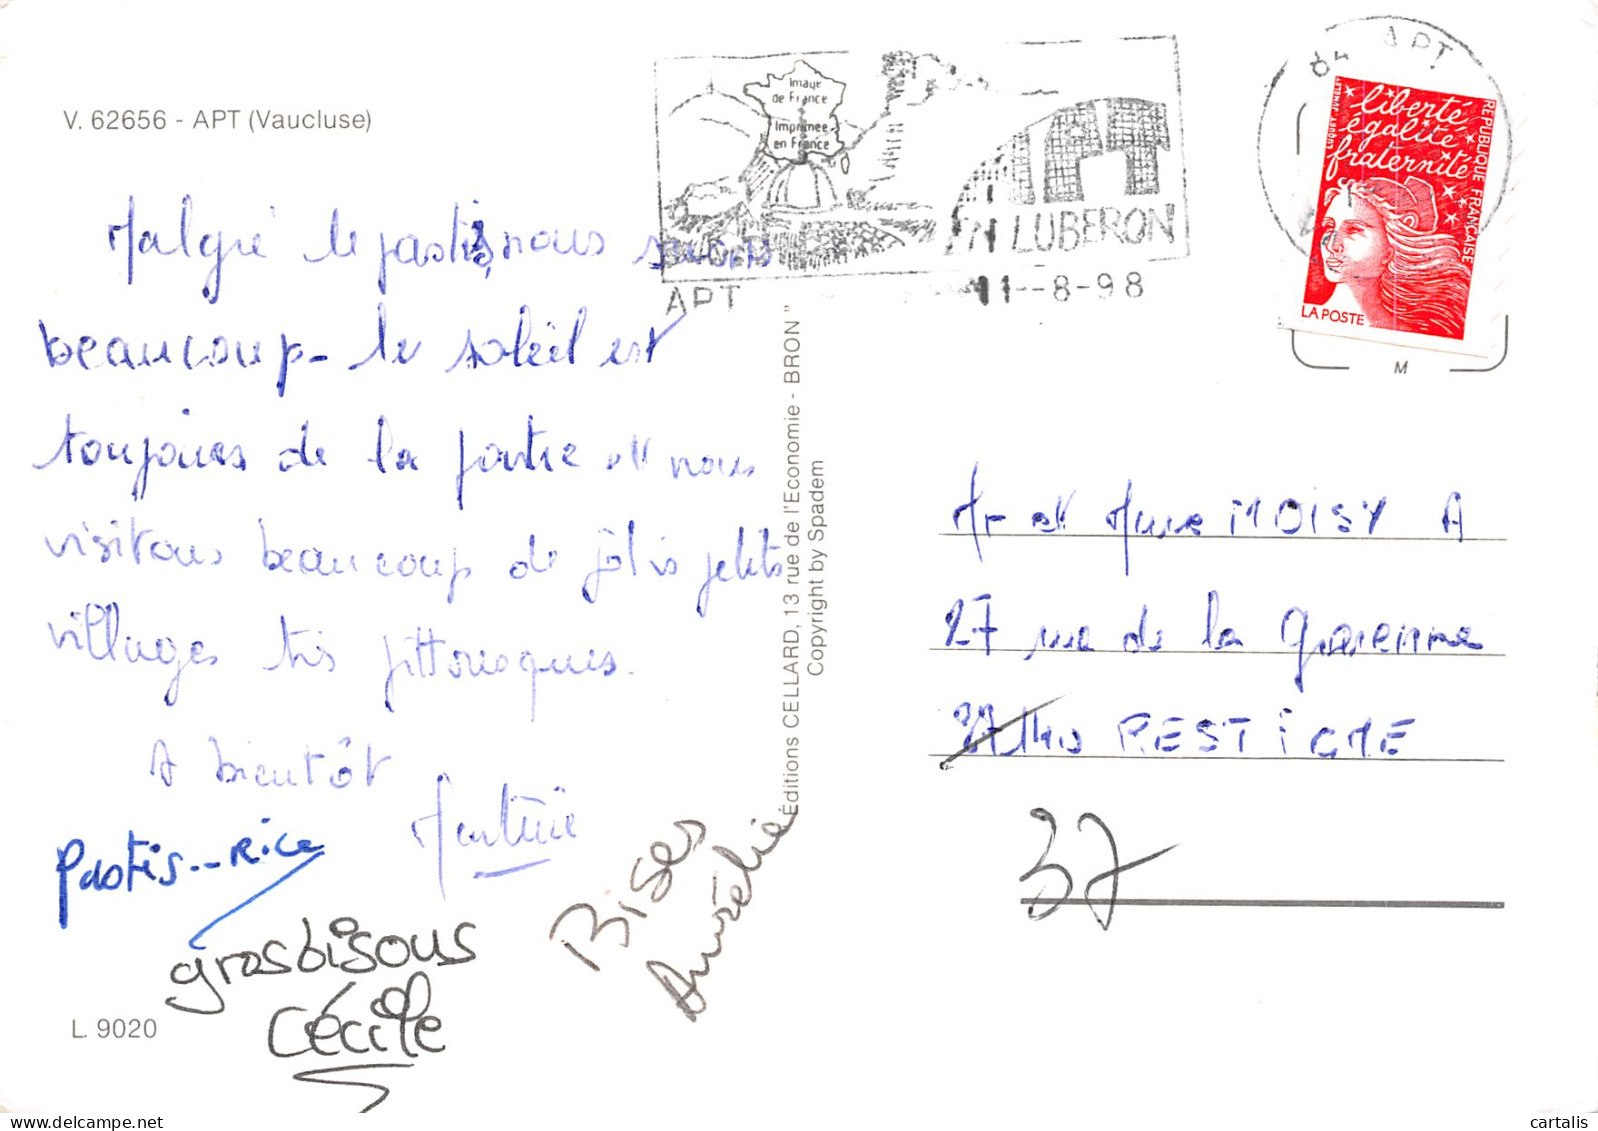 V. 62656 - APT (Vaucluse)
Malgré le pastis, nous suivons
beaucoup - le soleil est
toujours de la partie et nous
visitons beaucoup de jolis petits
villages très pittoresques.
A bientôt
Martine
Pastis..-Rica
gros bisous
Cécile
Bises
Aurélie
L. 9020
Éditions CELLARD, 13 rue de l'Economie - BRON"
Copyright by Spadem
Image
de France
Imprimée
en France
APT
EN LUBERON
APT
11--8-98
84 APT
liberté
égalité
fraternité
REPUBLIQUE FRANÇAISE
LUQUET JUMELET
LA POSTE
M
Mr et Mme MOISY A
27 rue de la garenne
37140 RESTIGNE
37
cartalis